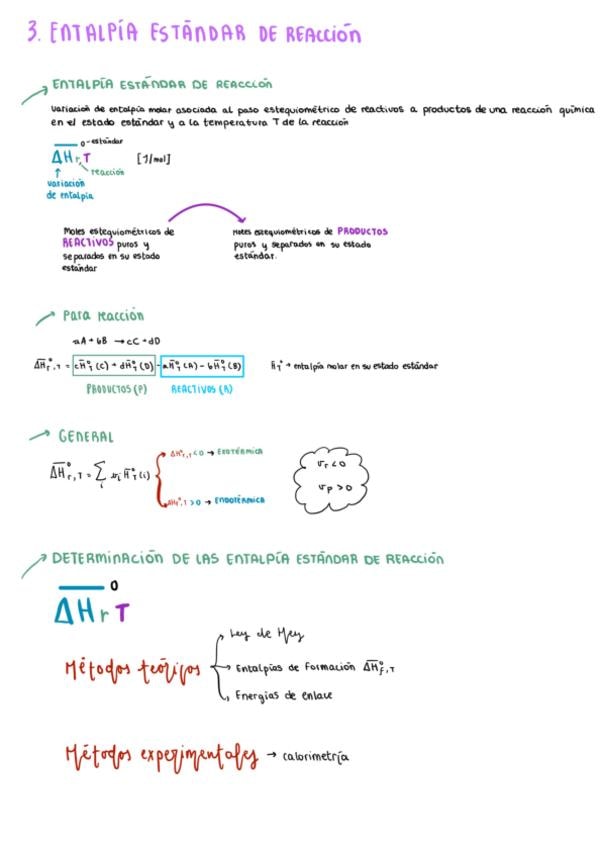 3. ENTALPÍA ESTÁNDAR DE REACCIÓN
ENTALPÍA ESTÁNDAR DE REACCIÓN
Variación de entalpía molar asociada al paso estequiométrico de reactivos a productos de una reacción química
en el estado estándar y a la temperatura T de la reacción
0-estándar
ΔHr,T [J/mol]
reacción
variación
de entalpía
Moles estequiométricos de
REACTIVOS puros y
separados en su estado
estándar
Moles estequiométricos de PRODUCTOS
puros y separados en su estado
estándar.
Para reacción
aA + bB → cC + dD
ΔH°r,T = cH°T (C) + dH°T (D) - aH°T (A) - bH°T (B)
H°T → entalpía molar en su estado estándar
PRODUCTOS (P) REACTIVOS (R)
GENERAL
ΔH°r,T < 0 → EXOTÉRMICA
ΔH°r,T = Σi νi H°T (i)
ΔH°r,T > 0 → ENDOTÉRMICA
νr < 0
νp > 0
DETERMINACIÓN DE LAS ENTALPÍA ESTÁNDAR DE REACCIÓN
ΔH°r T
Métodos teóricos
Ley de Hess
Entalpías de Formación ΔH°f,T
Energías de enlace
Métodos experimentales → calorimetría